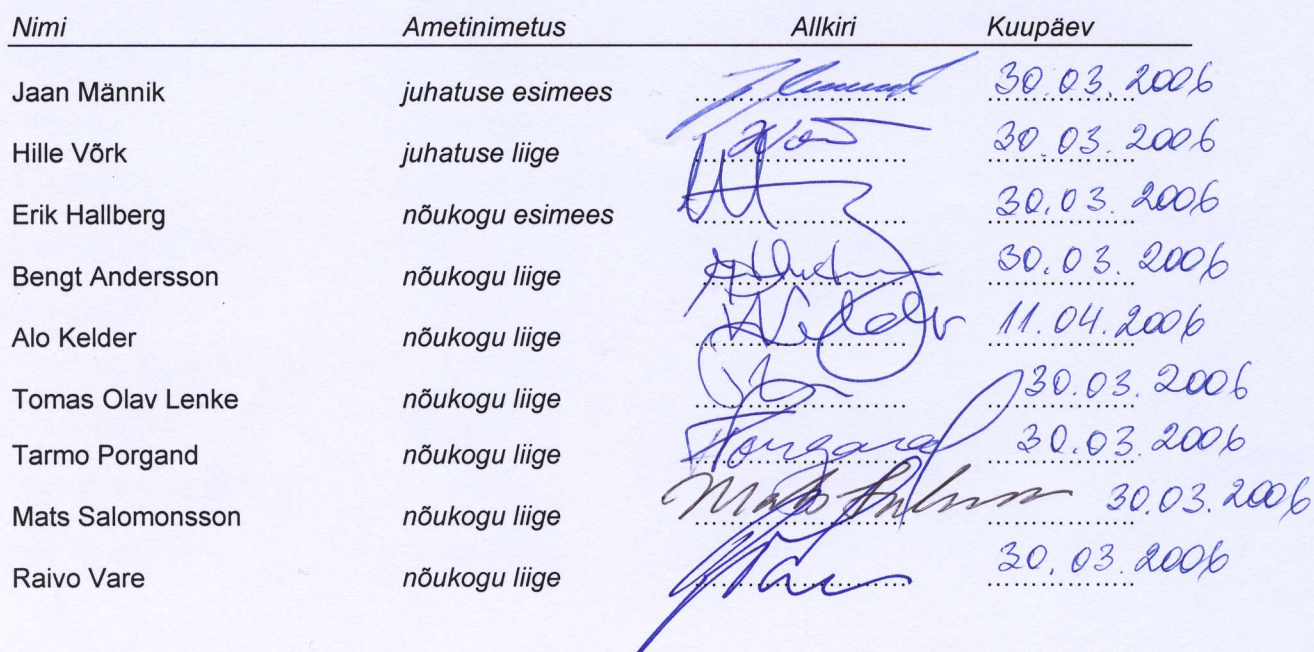 Nimi Ametinimetus Allkiri Kuupäev
Jaan Männik juhatuse esimees 30.03.2006
Hille Võrk juhatuse liige 30.03.2006
Erik Hallberg nõukogu esimees 30.03.2006
Bengt Andersson nõukogu liige 30.03.2006
Alo Kelder nõukogu liige 11.04.2006
Tomas Olav Lenke nõukogu liige 30.03.2006
Tarmo Porgand nõukogu liige 30.03.2006
Mats Salomonsson nõukogu liige 30.03.2006
Raivo Vare nõukogu liige 30.03.2006